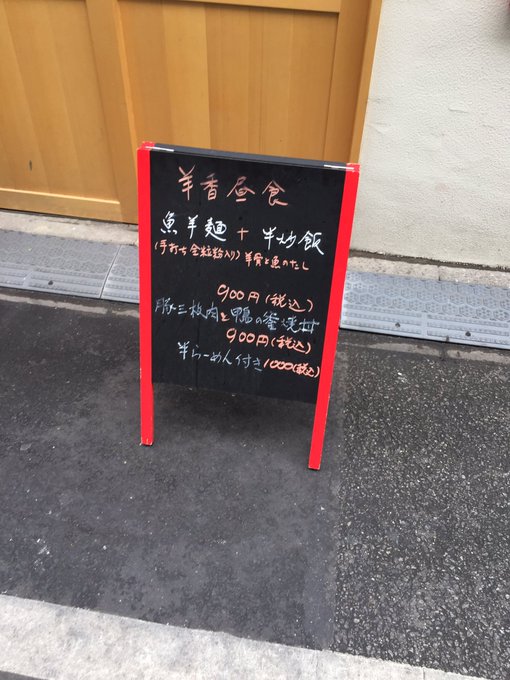 羊香昼食
魚羊麺 + 半炒飯
(手打ち 全粒粉入り) 羊骨と魚のだし
900円(税込)
豚三枚肉と鴨の釜焼丼
900円(税込)
半らーめん付き1000(税込)